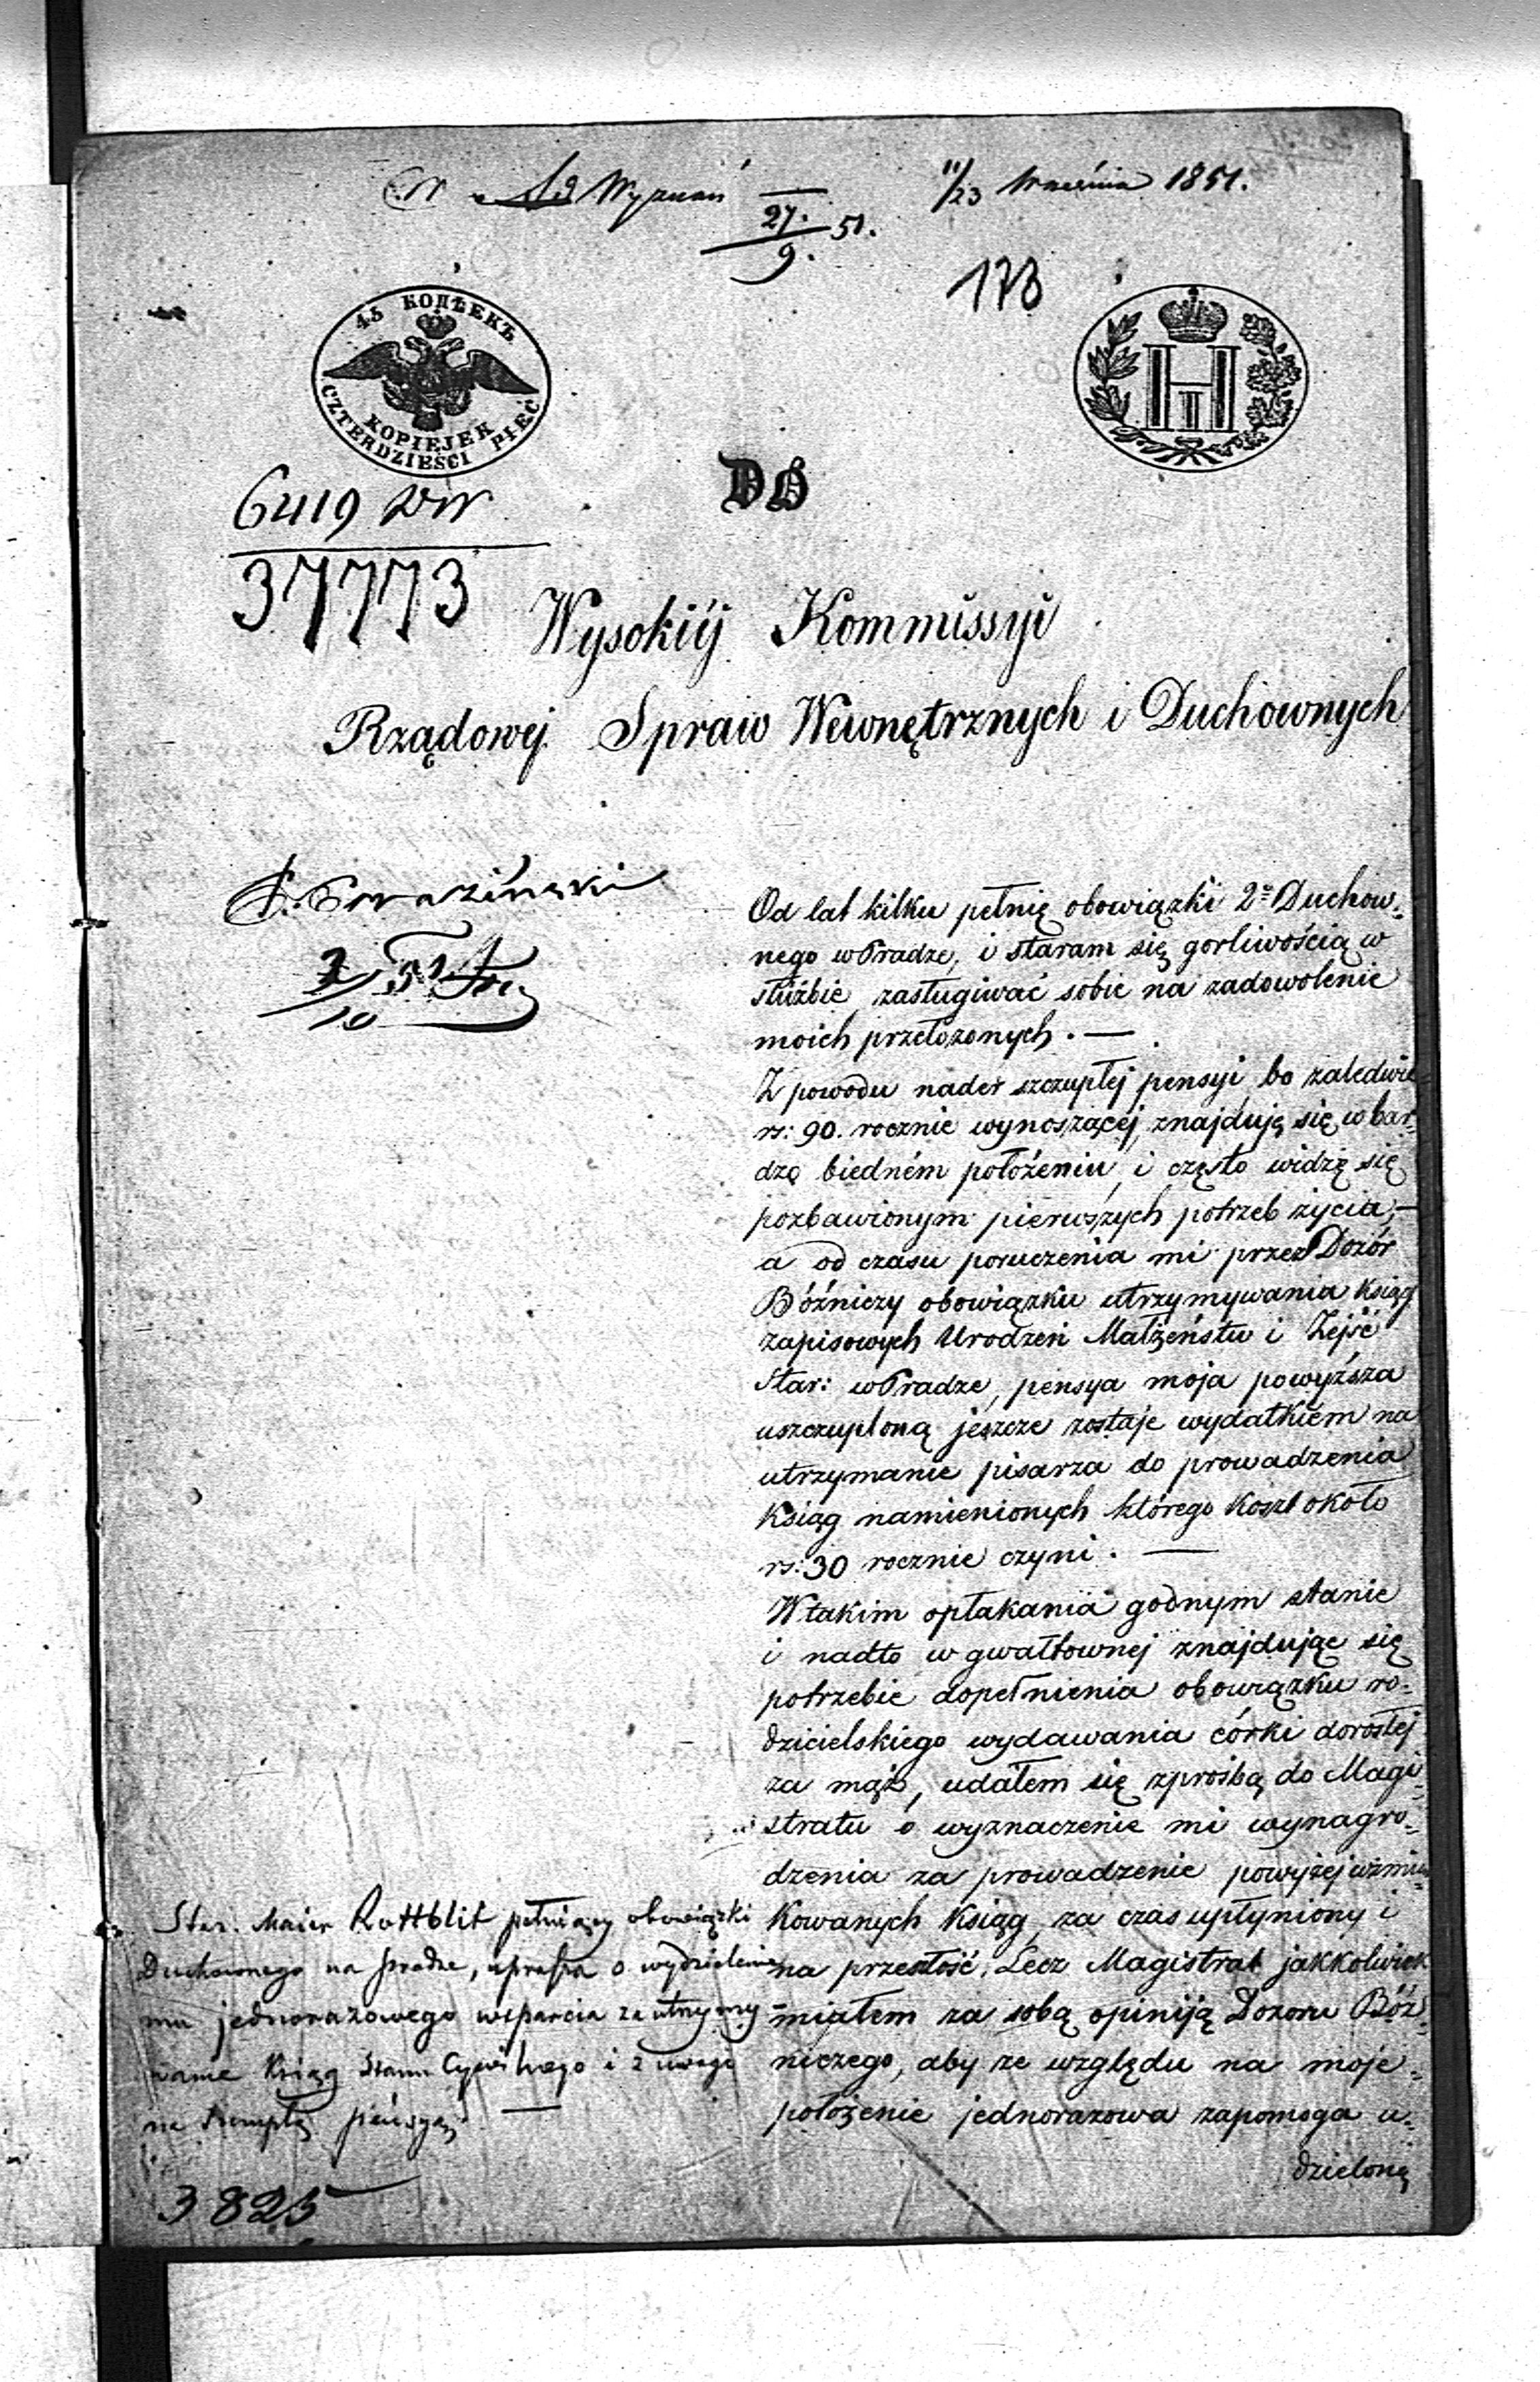 Wyznań
11/23 Września 1851.
27./9. 51.
173
45 КОПѢЕКЪ
KOPIEJEK
CZTERDZIEŚCI PIĘĆ
H II
6419
37773
DO
Wysokiéj Kommissyi
Rządowéj Spraw Wewnętrznych i Duchownych
2/10 51
Od lat kilku pełnię obowiązki 2º Duchow-
nego w Pradze, i staram się gorliwością w
służbie zasługiwać sobie na zadowolenie
moich przełożonych. —
Z powodu nader szczupłej pensyi, bo zaledwie
rs: 90. rocznie wynoszącej, znajduję się w bar-
dzo biedném położeniu, i często widzę się
pozbawionym pierwszych potrzeb życia, —
a od czasu poruczenia mi przez Dozór
Bóźniczy obowiązku utrzymywania ksiąg
zapisowych Urodzeń Małżeństw i Zejść
Star: w Pradze, pensya moja powyższa
uszczuploną jeszcze zostaje wydatkiem na
utrzymanie pisarza do prowadzenia
Ksiąg namienionych którego koszt około
rs: 30 rocznie czyni. —
W takim opłakania godnym stanie
i nadto w gwałtownej znajdując się
potrzebie dopełnienia obowiązku ro-
dzicielskiego wydawania córki dorosłej
za mąż, udałem się z prośbą do Magi-
stratu o wyznaczenie mi wynagro-
dzenia za prowadzenie powyżej wzmian-
kowanych Ksiąg, za czas upłyniony i
na przeszłość. Lecz Magistrat jakkolwiek
miałem za sobą opiniją Dozoru Bóź-
niczego, aby ze względu na moje
położenie jednorazowa zapomoga u-
dzieloną
Star. Maier Rottblit pełniący obowiązki
Duchownego na Pradze, uprasza o wydzielenie
mu jednorazowego wsparcia za utrzymy-
wanie Ksiąg Stanu Cywilnego i z uwagi
na szczupłą pensyą. —
3825